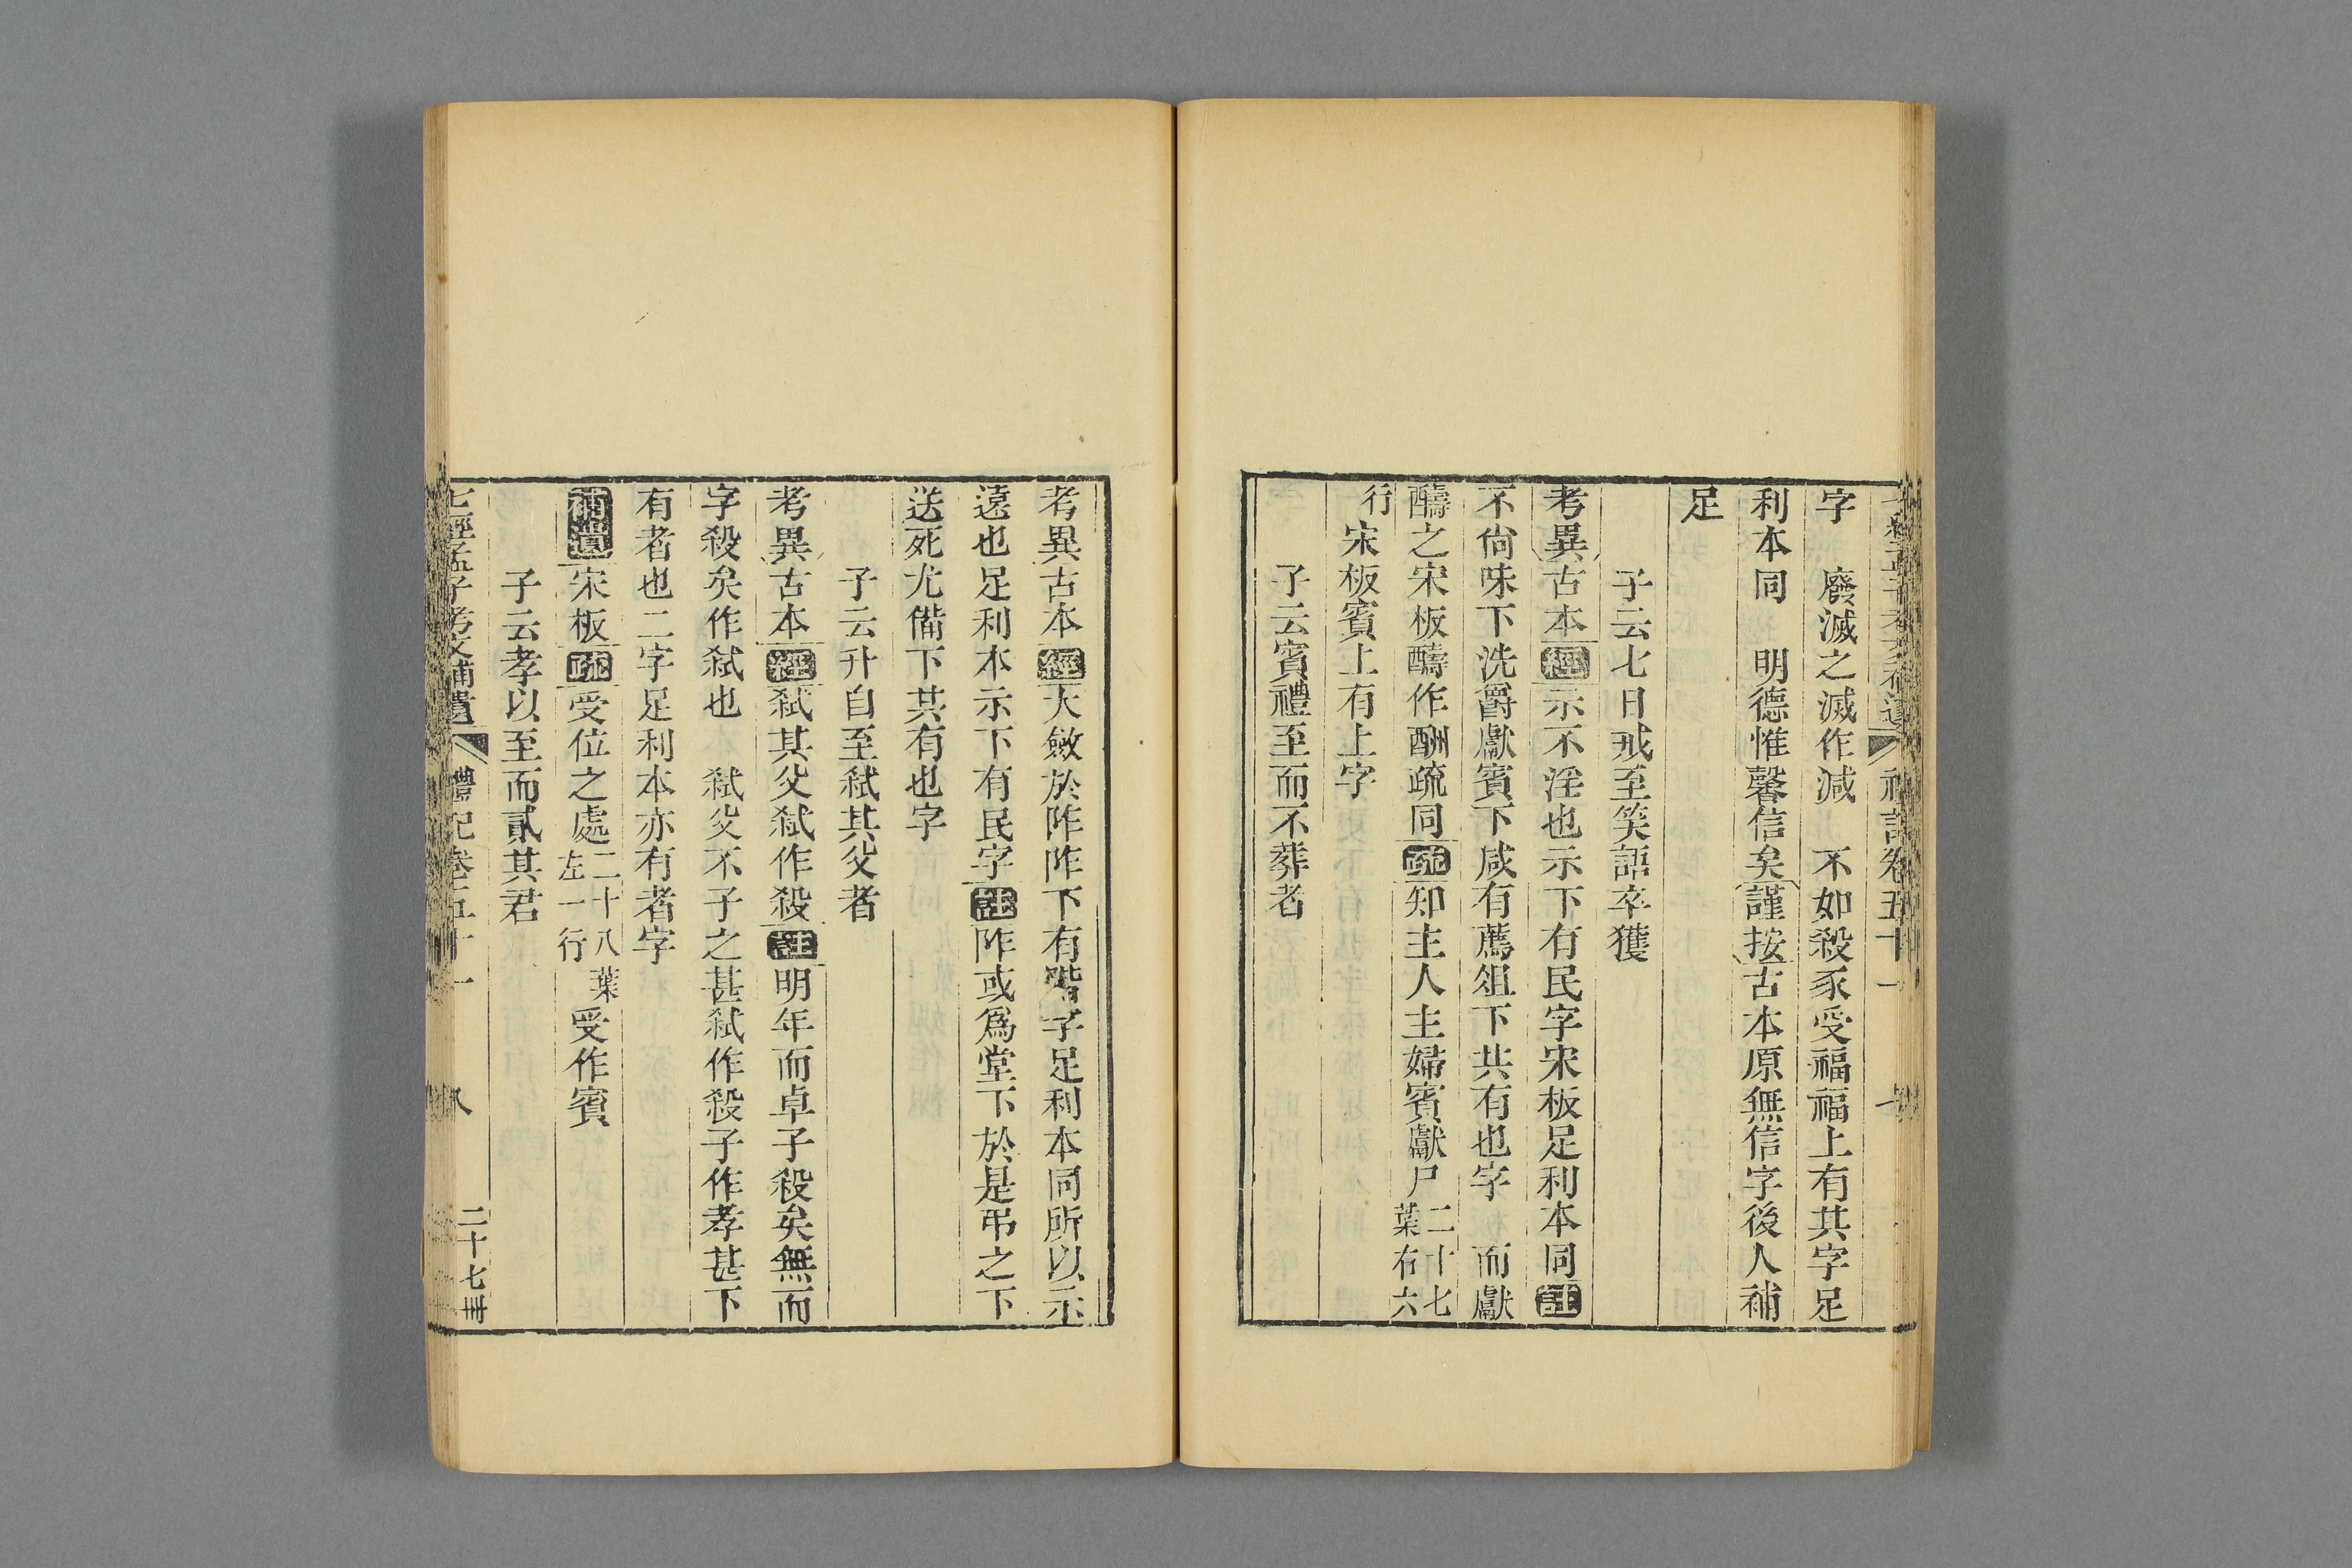 字　廢滅之滅作減　不如殺豕受福福上有其字足
利本同　明德惟馨信矣謹按古本原無信字後人補
足
子云七日戒至笑語卒獲
考異古本經示不淫也示下有民字宋板足利本同註
不尙味下洗爵獻賓下咸有薦俎下共有也字　而獻
醻之宋板醻作酬疏同疏知主人主婦賓獻尸二十七葉右六
行宋板賓上有上字
子云賓禮至而不葬者
考異古本經大斂於阼阼下有階字足利本同所以示
遠也足利本示下有民字註阼或爲堂下於是弔之下
送死尤備下其有也字
子云升自至弒其父者
考異古本經弒其父弒作殺註明年而卓子殺矣無而
字殺矣作弒也　弒父不子之甚弒作殺子作孝甚下
有者也二字足利本亦有者字
補遺宋板疏受位之處二十八葉左一行受作賓
子云孝以至而貳其君
七經孟子考文補遺　禮記卷五十一　八　二十七